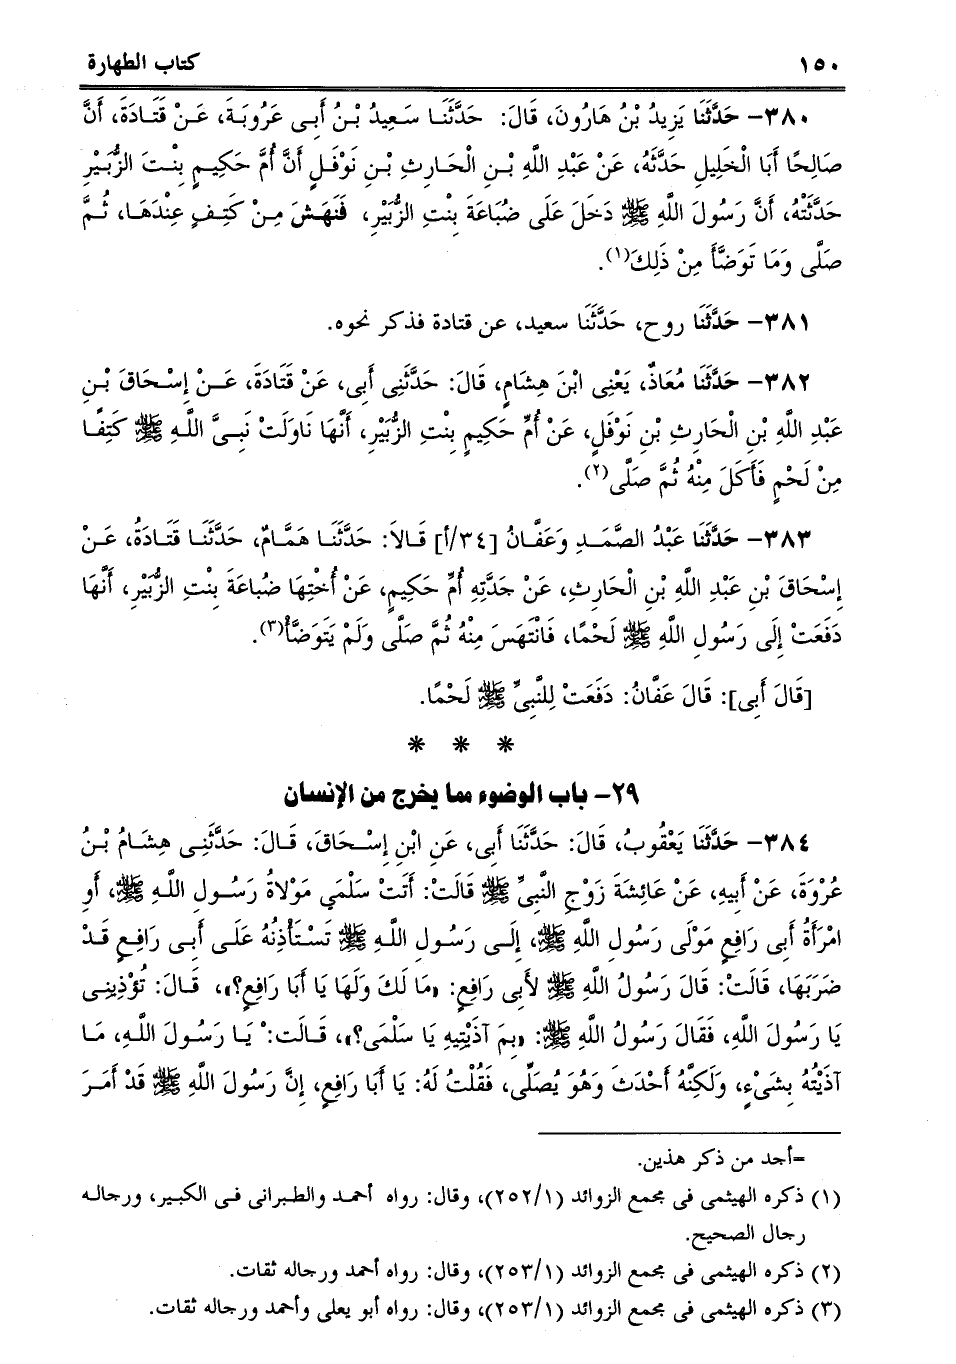 ١٥٠ كتاب الطهارة
٣٨٠- حَدَّثَنَا يَزِيدُ بْنُ هَارُونَ، قَالَ: حَدَّثَنَا سَعِيدُ بْنُ أَبِى عَرُوبَةَ، عَنْ قَتَادَةَ، أَنَّ
صَالِحًا أَبَا الْخَلِيلِ حَدَّثَهُ، عَنْ عَبْدِ اللَّهِ بْنِ الْحَارِثِ بْنِ نَوْفَلٍ أَنَّ أُمَّ حَكِيمٍ بِنْتَ الزُّبَيْرِ
حَدَّثَتْهُ، أَنَّ رَسُولَ اللَّهِ ﷺ دَخَلَ عَلَى ضُبَاعَةَ بِنْتِ الزُّبَيْرِ، فَنَهَشَ مِنْ كَتِفٍ عِنْدَهَا، ثُمَّ
صَلَّى وَمَا تَوَضَّأَ مِنْ ذَلِكَ(١).
٣٨١- حَدَّثَنَا روح، حَدَّثَنَا سعيد، عن قتادة فذكر نحوه.
٣٨٢- حَدَّثَنَا مُعَاذٌ، يَعْنِى ابْنَ هِشَامٍ، قَالَ: حَدَّثَنِى أَبِى، عَنْ قَتَادَةَ، عَنْ إِسْحَاقَ بْنِ
عَبْدِ اللَّهِ بْنِ الْحَارِثِ بْنِ نَوْفَلٍ، عَنْ أُمِّ حَكِيمٍ بِنْتِ الزُّبَيْرِ، أَنَّهَا نَاوَلَتْ نَبِىَّ اللَّهِ ﷺ كَتِفًا
مِنْ لَحْمٍ فَأَكَلَ مِنْهُ ثُمَّ صَلَّى(٢).
٣٨٣- حَدَّثَنَا عَبْدُ الصَّمَدِ وَعَفَّانُ [٣٤/أ] قَالاَ: حَدَّثَنَا هَمَّامٌ، حَدَّثَنَا قَتَادَةُ، عَنْ
إِسْحَاقَ بْنِ عَبْدِ اللَّهِ بْنِ الْحَارِثِ، عَنْ جَدَّتِهِ أُمِّ حَكِيمٍ، عَنْ أُخْتِهَا ضُبَاعَةَ بِنْتِ الزُّبَيْرِ، أَنَّهَا
دَفَعَتْ إِلَى رَسُولِ اللَّهِ ﷺ لَحْمًا، فَانْتَهَسَ مِنْهُ ثُمَّ صَلَّى وَلَمْ يَتَوَضَّأْ(٣).
[قَالَ أَبِى]: قَالَ عَفَّانُ: دَفَعَتْ لِلنَّبِىِّ ﷺ لَحْمًا.
* * *
٢٩- باب الوضوء مما يخرج من الإنسان
٣٨٤- حَدَّثَنَا يَعْقُوبُ، قَالَ: حَدَّثَنَا أَبِى، عَنِ ابْنِ إِسْحَاقَ، قَالَ: حَدَّثَنِى هِشَامُ بْنُ
عُرْوَةَ، عَنْ أَبِيهِ، عَنْ عَائِشَةَ زَوْجِ النَّبِىِّ ﷺ قَالَتْ: أَتَتْ سَلْمَي مَوْلاَةُ رَسُولِ اللَّهِ ﷺ، أَوِ
امْرَأَةُ أَبِى رَافِعٍ مَوْلَى رَسُولِ اللَّهِ ﷺ، إِلَى رَسُولِ اللَّهِ ﷺ تَسْتَأْذِنُهُ عَلَى أَبِى رَافِعٍ قَدْ
ضَرَبَهَا، قَالَتْ: قَالَ رَسُولُ اللَّهِ ﷺ لأَبِى رَافِعٍ: «مَا لَكَ وَلَهَا يَا أَبَا رَافِعٍ؟»، قَالَ: تُؤْذِينِى
يَا رَسُولَ اللَّهِ، فَقَالَ رَسُولُ اللَّهِ ﷺ: «بِمَ آذَيْتِيهِ يَا سَلْمَى؟»، قَالَت: يَا رَسُولَ اللَّهِ، مَا
آذَيْتُهُ بِشَىْءٍ، وَلَكِنَّهُ أَحْدَثَ وَهُوَ يُصَلِّى، فَقُلْتُ لَهُ: يَا أَبَا رَافِعٍ، إِنَّ رَسُولَ اللَّهِ ﷺ قَدْ أَمَرَ
=أجد من ذكر هذين.
(١) ذكره الهيثمى فى مجمع الزوائد (٢٥٢/١)، وقال: رواه أحمد والطبرانى فى الكبير، ورجاله
رجال الصحيح.
(٢) ذكره الهيثمى فى مجمع الزوائد (٢٥٣/١)، وقال: رواه أحمد ورجاله ثقات.
(٣) ذكره الهيثمى فى مجمع الزوائد (٢٥٣/١)، وقال: رواه أبو يعلى وأحمد ورجاله ثقات.